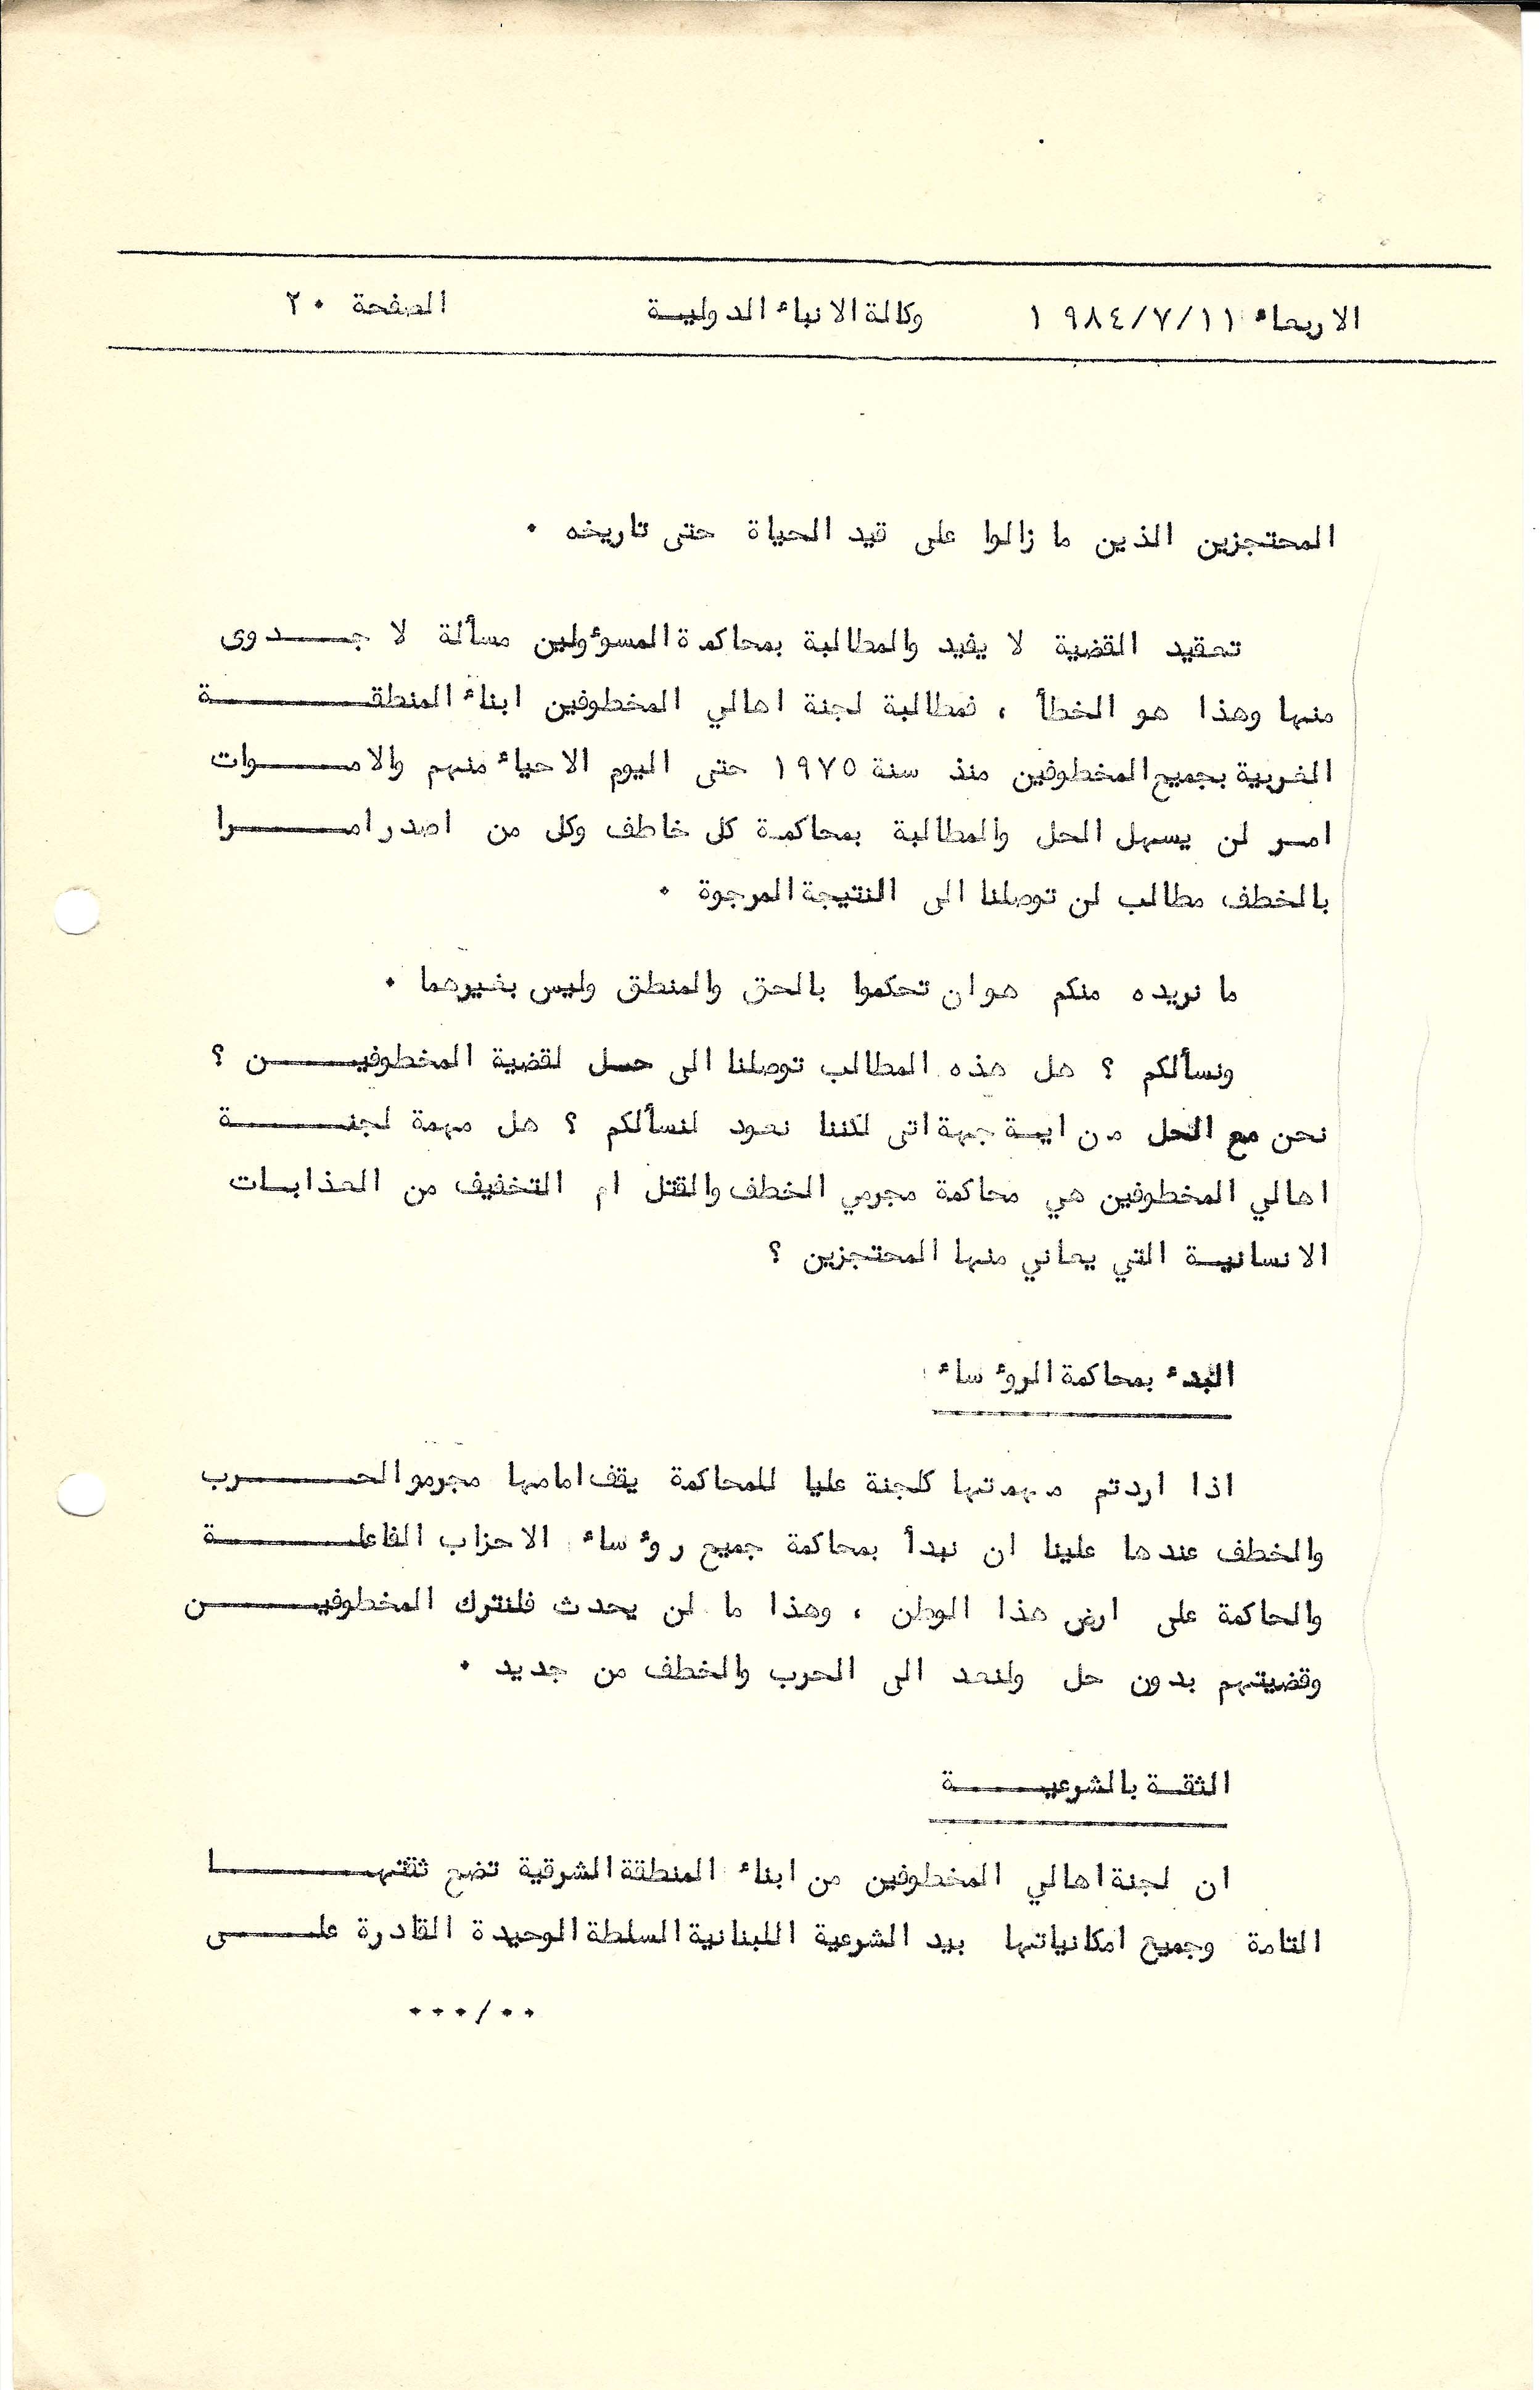 الاربعاء ١٩٨٤/٧/١١ وكالة الانباء الدولية الصفحة ٢٠
المحتجزين الذين ما زالوا على قيد الحياة حتى تاريخه .
تعقيد القضية لا يفيد والمطالبة بمحاكمة المسوءولين مسألة لا جـــدوى
منها وهذا هو الخطأ ، فمطالبة لجنة اهالي المخطوفين ابناء المنطقـــــة
الغربية بجميع المخطوفين منذ سنة ١٩٧٥ حتى اليوم الاحياء منهم والامـــوات
امر لن يسهل الحل والمطالبة بمحاكمة كل خاطف وكل من اصدر امـــرا
بالخطف مطالب لن توصلنا الى النتيجة المرجوة .
ما نريده منكم هو ان تحكموا بالحق والمنطق وليس بغيرهما .
ونسألكم ؟ هل هذه المطالب توصلنا الى حل لقضية المخطوفيـــن ؟
نحن مع الحل من اية جهة اتى لكننا نعود لنسألكم ؟ هل مهمة لجنـــة
اهالي المخطوفين هي محاكمة مجرمي الخطف والقتل ام التخفيف من العذابات
الانسانية التي يعاني منها المحتجزين ؟
البدء بمحاكمة الروءساء
اذا اردتم مهمتها كلجنة عليا للمحاكمة يقف امامها مجرمو الحـــرب
والخطف عندها علينا ان نبدأ بمحاكمة جميع روءساء الاحزاب الفاعلـــة
والحاكمة على ارض هذا الوطن ، وهذا ما لن يحدث فلنترك المخطوفيـــن
وقضيتهم بدون حل ولنعد الى الحرب والخطف من جديد .
الثقة بالشرعيـــة
ان لجنة اهالي المخطوفين من ابناء المنطقة الشرقية تضع ثقتهـــا
التامة وجميع امكانياتها بيد الشرعية اللبنانية السلطة الوحيدة القادرة علـــى
../...